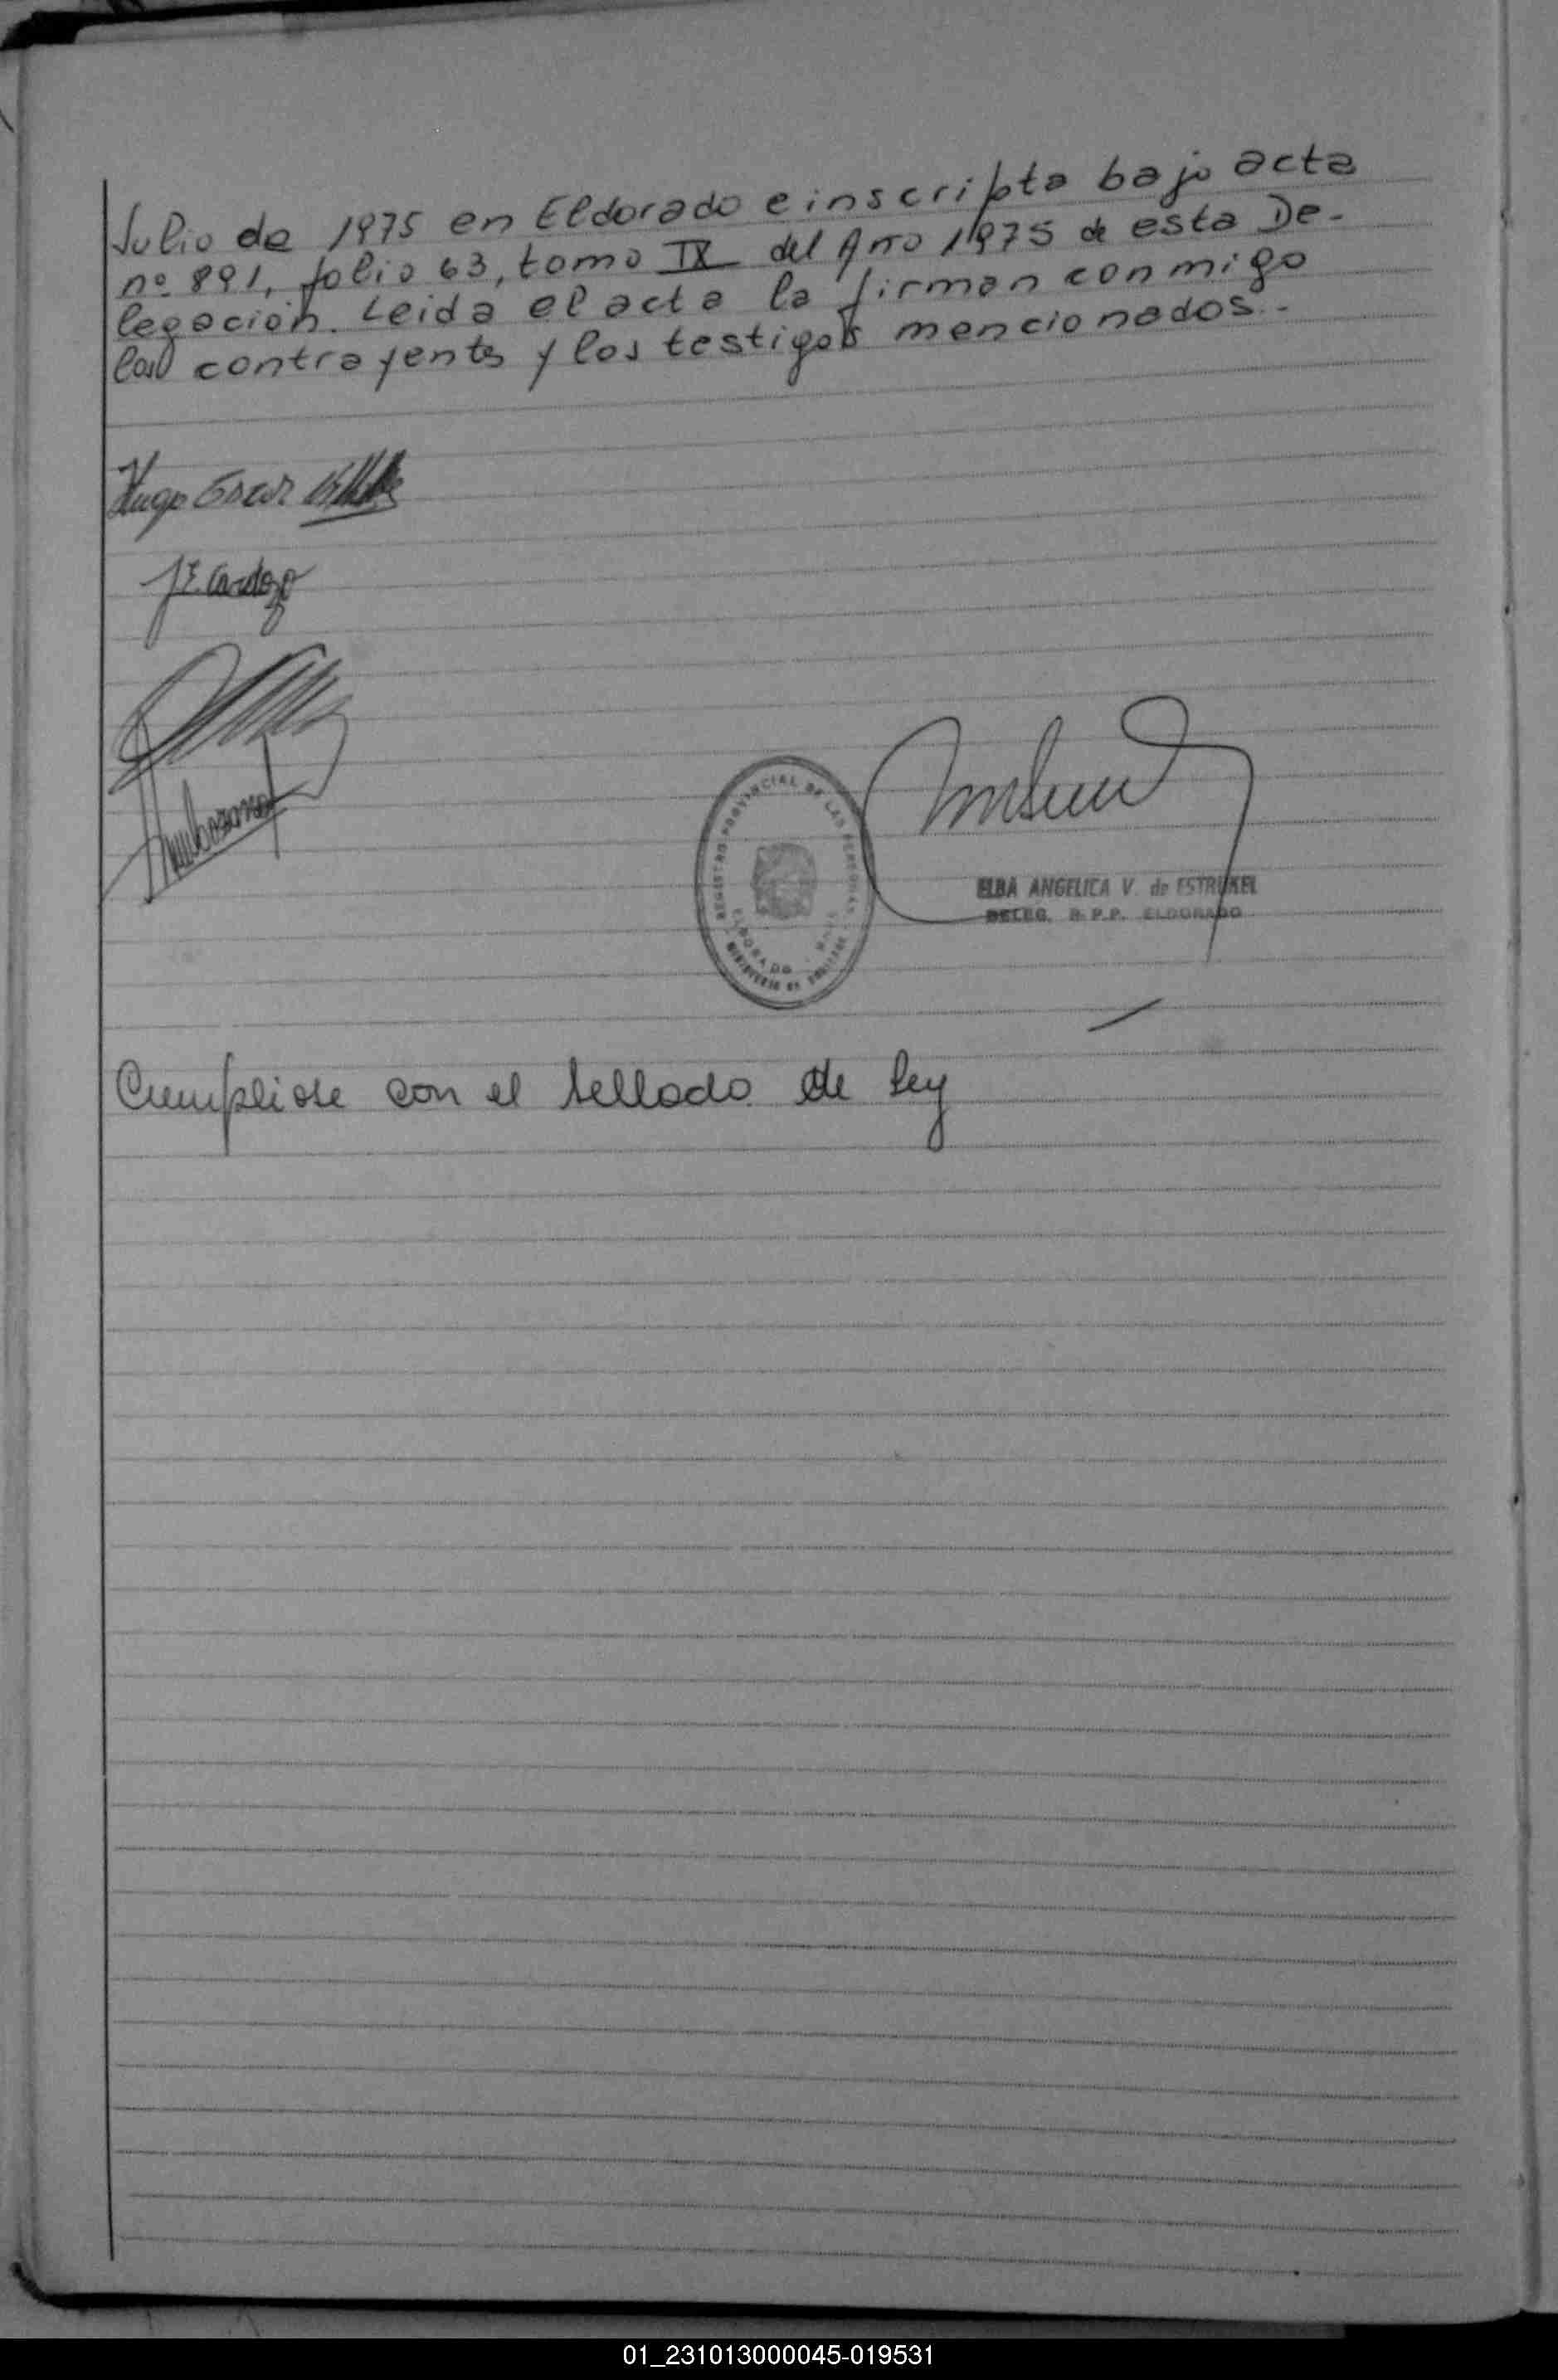 Julio de 1975 en Eldorado e inscripta bajo acta
nº 891, folio 63, tomo IX del Año 1975 de esta De-
legación. Leida el acta la firman conmigo
los contrayentes y los testigos mencionados.-
Hugo Oscar
J E. Cardozo
REGISTRO PROVINCIAL DE LAS PERSONAS
ELDORADO
MINISTERIO DE
ELBA ANGELICA V. de ESTRUKEL
DELEG. R. P. P. ELDORADO
Cumpliose con el sellado de ley
01_231013000045-019531